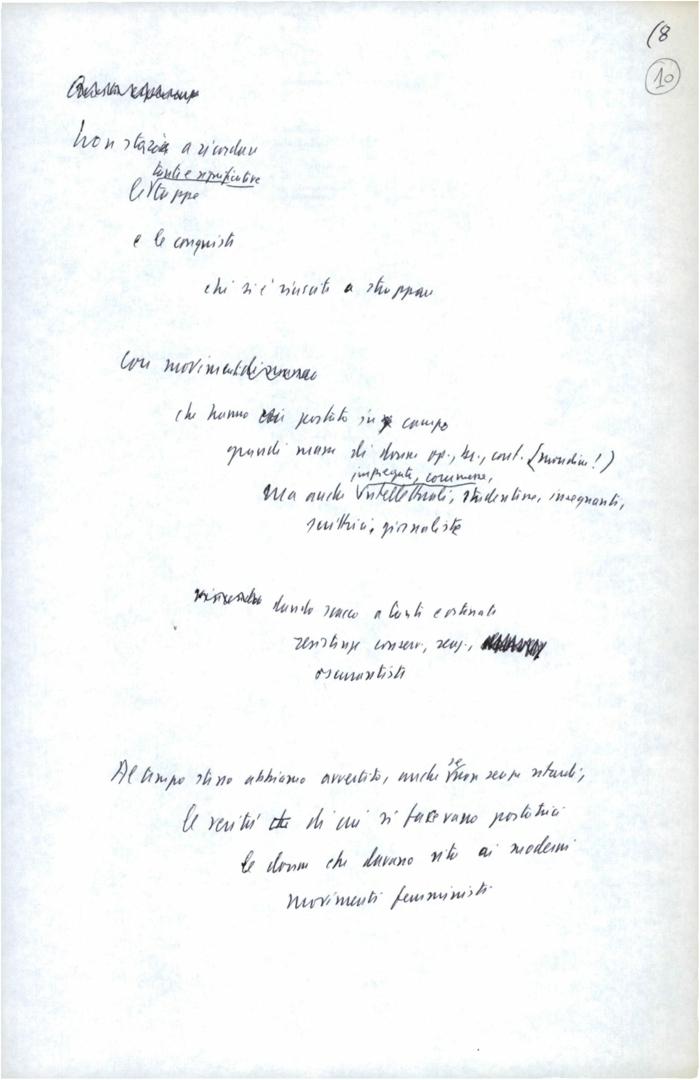 (8
10
Non starò a ricordare
tante e significative
le tappe
e le conquiste
che si è riusciti a strappare
con movimenti
che hanno portato in campo
grandi masse di donne op., con. (mondine!)
impiegate, commesse,
ma anche intellettuali, studentesse, insegnanti,
scrittrici, giornaliste
dando scacco a tante e ostinate
resistenze conserv., reaz.,
oscurantiste
Al tempo stesso abbiamo avvertito, anche se non senza ritardi,
le verità di cui si facevano portatrici
le donne che davano vita ai moderni
movimenti femministi